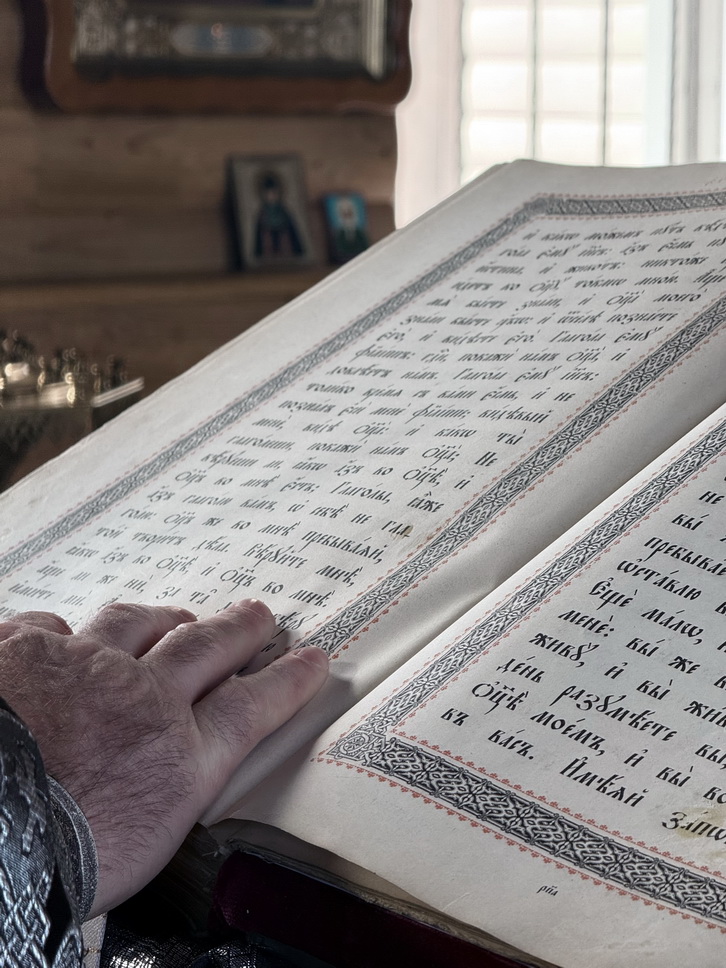 и҆ ка́кѡ мо́жемъ пꙋ́ть
гола є҆мꙋ̀ і҆и҃съ: а҆́зъ є҆́смь
и҆́стина, и҆ живо́тъ: никто́же
ко ѻ҆ц҃ꙋ̀ то́кмѡ мно́ю. А҆́ще
мѧ̀ бы́сте зна́ли, и҆ ѻ҆ц҃а̀ моего̀
зна́ли бы́сте ᲂу҆́бѡ: и҆ ѿсе́лѣ позна́сте
є҆го̀, и҆ ви́дѣсте є҆го̀. Глаго́ла є҆мꙋ̀
фїлі́ппъ: гдⷭ҇и, покажѝ на́мъ ѻ҆ц҃а̀, и҆
довлѣ́етъ на́мъ. Глаго́ла є҆мꙋ̀ і҆и҃съ:
толи́ко вре́мѧ съ ва́ми є҆́смь, и҆ не
позна́лъ є҆сѝ менѐ, фїлі́ппе; ви́дѣвый
менѐ ви́дѣ ѻ҆ц҃а̀: и҆ ка́кѡ ты̀
глаго́леши, покажѝ на́мъ ѻ҆ц҃а̀; Не
вѣ́рꙋеши ли, ꙗ҆́кѡ а҆́зъ во ѻ҆ц҃ѣ̀, и҆
ѻ҆ц҃ъ во мнѣ̀ є҆́сть; Глаго́лы, ꙗ҆̀же
а҆́зъ глаго́лю ва́мъ, ѡ҆ себѣ̀ не гла
го́лю: ѻ҆ц҃ъ же во мнѣ̀ пребыва́ѧй,
то́й твори́тъ дѣла̀. Вѣ́рꙋйте мнѣ̀,
ꙗ҆́кѡ а҆́зъ во ѻ҆ц҃ѣ̀, и҆ ѻ҆ц҃ъ во мнѣ̀:
а҆́ще ли же нѝ, за та̑
не
вы̀
пребыва
ѡ҆ста́влю
Є҆щѐ ма́лѡ, и҆
менѐ: вы́ же
живꙋ̀, и҆ вы̀ жи
де́нь разꙋмѣ́ете вы̀
ѻ҆ц҃ѣ̀ мое́мъ, и҆ вы̀ во
въ ва́съ. И҆мѣ́ѧй
рп҃а